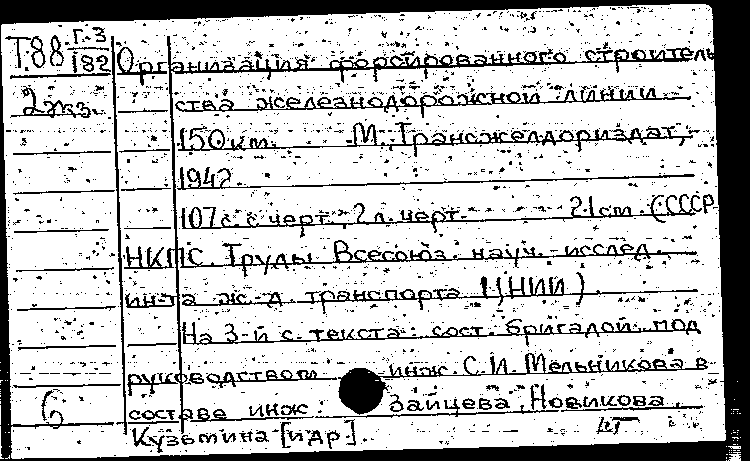 Т88 Г-3/182 Организация форсированного строитель
2 экз. ства железнодорожной линии
150 км. М., Трансжелдориздат,
1942.
107 с. с черт., 2 л. черт. 21 см. (СССР
НКПС. Труды Всесоюз. науч.-исслед.
ин-та ж.-д. транспорта ЦНИИ).
На 3-й с. текста: сост. бригадой под
руководством инж. С. И. Мельникова в
6 составе инж. Зайцева, Новикова,
Кузьмина [и др.].